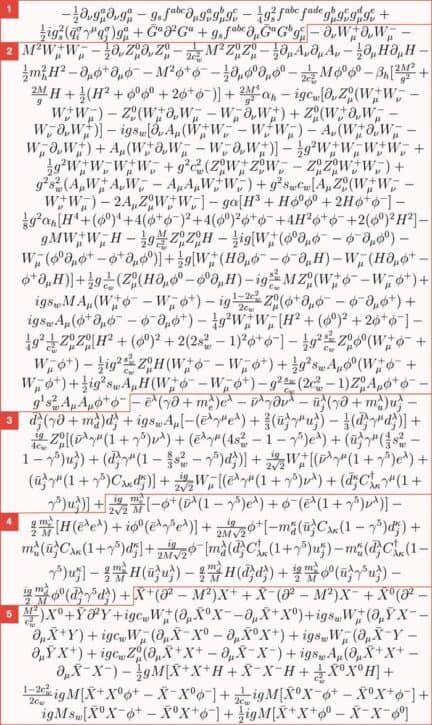 1 -\frac{1}{2}\partial_\nu g^a_\mu \partial_\nu g^a_\mu - g_s f^{abc}\partial_\mu g^a_\nu g^b_\mu g^c_\nu - \frac{1}{4}g^2_s f^{abc}f^{ade}g^b_\mu g^c_\nu g^d_\mu g^e_\nu +
\frac{1}{2}ig^2_s(\bar{q}^\sigma_i \gamma^\mu q^\sigma_j)g^a_\mu + \bar{G}^a \partial^2 G^a + g_s f^{abc}\partial_\mu \bar{G}^a G^b g^c_\mu - \partial_\nu W^+_\mu \partial_\nu W^-_\mu -
2 M^2 W^+_\mu W^-_\mu - \frac{1}{2}\partial_\nu Z^0_\mu \partial_\nu Z^0_\mu - \frac{1}{2c^2_w}M^2 Z^0_\mu Z^0_\mu - \frac{1}{2}\partial_\mu A_\nu \partial_\mu A_\nu - \frac{1}{2}\partial_\mu H \partial_\mu H -
\frac{1}{2}m^2_h H^2 - \partial_\mu \phi^+ \partial_\mu \phi^- - M^2 \phi^+ \phi^- - \frac{1}{2}\partial_\mu \phi^0 \partial_\mu \phi^0 - \frac{1}{2c^2_w}M \phi^0 \phi^0 - \beta_h[\frac{2M^2}{g^2} +
\frac{2M}{g}H + \frac{1}{2}(H^2 + \phi^0 \phi^0 + 2\phi^+ \phi^-)] + \frac{2M^4}{g^2}\alpha_h - igc_w[\partial_\nu Z^0_\mu(W^+_\mu W^-_\nu -
W^+_\nu W^-_\mu) - Z^0_\nu(W^+_\mu \partial_\nu W^-_\mu - W^-_\mu \partial_\nu W^+_\mu) + Z^0_\mu(W^+_\nu \partial_\nu W^-_\mu -
W^-_\nu \partial_\nu W^+_\mu)] - igs_w[\partial_\nu A_\mu(W^+_\mu W^-_\nu - W^+_\nu W^-_\mu) - A_\nu(W^+_\mu \partial_\nu W^-_\mu -
W^-_\mu \partial_\nu W^+_\mu) + A_\mu(W^+_\nu \partial_\nu W^-_\mu - W^-_\nu \partial_\nu W^+_\mu)] - \frac{1}{2}g^2 W^+_\mu W^-_\mu W^+_\nu W^-_\nu +
\frac{1}{2}g^2 W^+_\mu W^-_\nu W^+_\mu W^-_\nu + g^2 c^2_w(Z^0_\mu W^+_\mu Z^0_\nu W^-_\nu - Z^0_\mu Z^0_\mu W^+_\nu W^-_\nu) +
g^2 s^2_w(A_\mu W^+_\mu A_\nu W^-_\nu - A_\mu A_\mu W^+_\nu W^-_\nu) + g^2 s_w c_w[A_\mu Z^0_\nu(W^+_\mu W^-_\nu -
W^+_\nu W^-_\mu) - 2A_\mu Z^0_\mu W^+_\nu W^-_\nu] - g\alpha[H^3 + H\phi^0 \phi^0 + 2H\phi^+ \phi^-] -
\frac{1}{8}g^2 \alpha_h[H^4 + (\phi^0)^4 + 4(\phi^+ \phi^-)^2 + 4(\phi^0)^2 \phi^+ \phi^- + 4H^2 \phi^+ \phi^- + 2(\phi^0)^2 H^2] -
gMW^+_\mu W^-_\mu H - \frac{1}{2}g\frac{M}{c^2_w}Z^0_\mu Z^0_\mu H - \frac{1}{2}ig[W^+_\mu(\phi^0 \partial_\mu \phi^- - \phi^- \partial_\mu \phi^0) -
W^-_\mu(\phi^0 \partial_\mu \phi^+ - \phi^+ \partial_\mu \phi^0)] + \frac{1}{2}g[W^+_\mu(H\partial_\mu \phi^- - \phi^- \partial_\mu H) - W^-_\mu(H\partial_\mu \phi^+ -
\phi^+ \partial_\mu H)] + \frac{1}{2}g\frac{1}{c_w}(Z^0_\mu(H\partial_\mu \phi^0 - \phi^0 \partial_\mu H) - ig\frac{s^2_w}{c_w}MZ^0_\mu(W^+_\mu \phi^- - W^-_\mu \phi^+) +
igs_w MA_\mu(W^+_\mu \phi^- - W^-_\mu \phi^+) - ig\frac{1-2c^2_w}{2c_w}Z^0_\mu(\phi^+ \partial_\mu \phi^- - \phi^- \partial_\mu \phi^+) +
igs_w A_\mu(\phi^+ \partial_\mu \phi^- - \phi^- \partial_\mu \phi^+) - \frac{1}{4}g^2 W^+_\mu W^-_\mu[H^2 + (\phi^0)^2 + 2\phi^+ \phi^-] -
\frac{1}{4}g^2 \frac{1}{c^2_w}Z^0_\mu Z^0_\mu[H^2 + (\phi^0)^2 + 2(2s^2_w - 1)^2 \phi^+ \phi^-] - \frac{1}{2}g^2 \frac{s^2_w}{c_w}Z^0_\mu \phi^0(W^+_\mu \phi^- +
W^-_\mu \phi^+) - \frac{1}{2}ig^2 \frac{s^2_w}{c_w}Z^0_\mu H(W^+_\mu \phi^- - W^-_\mu \phi^+) + \frac{1}{2}g^2 s_w A_\mu \phi^0(W^+_\mu \phi^- +
W^-_\mu \phi^+) + \frac{1}{2}ig^2 s_w A_\mu H(W^+_\mu \phi^- - W^-_\mu \phi^+) - g^2 \frac{s_w}{c_w}(2c^2_w - 1)Z^0_\mu A_\mu \phi^+ \phi^- -
g^1 s^2_w A_\mu A_\mu \phi^+ \phi^- - \bar{e}^\lambda(\gamma\partial + m^\lambda_e)e^\lambda - \bar{\nu}^\lambda \gamma\partial \nu^\lambda - \bar{u}^\lambda_j(\gamma\partial + m^\lambda_u)u^\lambda_j -
3 \bar{d}^\lambda_j(\gamma\partial + m^\lambda_d)d^\lambda_j + igs_w A_\mu[-(\bar{e}^\lambda \gamma^\mu e^\lambda) + \frac{2}{3}(\bar{u}^\lambda_j \gamma^\mu u^\lambda_j) - \frac{1}{3}(\bar{d}^\lambda_j \gamma^\mu d^\lambda_j)] +
\frac{ig}{4c_w}Z^0_\mu[(\bar{\nu}^\lambda \gamma^\mu(1 + \gamma^5)\nu^\lambda) + (\bar{e}^\lambda \gamma^\mu(4s^2_w - 1 - \gamma^5)e^\lambda) + (\bar{u}^\lambda_j \gamma^\mu(\frac{4}{3}s^2_w -
1 - \gamma^5)u^\lambda_j) + (\bar{d}^\lambda_j \gamma^\mu(1 - \frac{8}{3}s^2_w - \gamma^5)d^\lambda_j)] + \frac{ig}{2\sqrt{2}}W^+_\mu[(\bar{\nu}^\lambda \gamma^\mu(1 + \gamma^5)e^\lambda) +
(\bar{u}^\lambda_j \gamma^\mu(1 + \gamma^5)C_{\lambda\kappa}d^\kappa_j)] + \frac{ig}{2\sqrt{2}}W^-_\mu[(\bar{e}^\lambda \gamma^\mu(1 + \gamma^5)\nu^\lambda) + (\bar{d}^\kappa_j C^\dagger_{\lambda\kappa}\gamma^\mu(1 +
\gamma^5)u^\lambda_j)] + \frac{ig}{2\sqrt{2}}\frac{m^\lambda_e}{M}[-\phi^+(\bar{\nu}^\lambda(1 - \gamma^5)e^\lambda) + \phi^-(\bar{e}^\lambda(1 + \gamma^5)\nu^\lambda)] -
4 \frac{g}{2}\frac{m^\lambda_e}{M}[H(\bar{e}^\lambda e^\lambda) + i\phi^0(\bar{e}^\lambda \gamma^5 e^\lambda)] + \frac{ig}{2M\sqrt{2}}\phi^+[-m^\kappa_d(\bar{u}^\lambda_j C_{\lambda\kappa}(1 - \gamma^5)d^\kappa_j) +
m^\lambda_u(\bar{u}^\lambda_j C_{\lambda\kappa}(1 + \gamma^5)d^\kappa_j] + \frac{ig}{2M\sqrt{2}}\phi^-[m^\lambda_d(\bar{d}^\lambda_j C^\dagger_{\lambda\kappa}(1 + \gamma^5)u^\kappa_j) - m^\kappa_u(\bar{d}^\lambda_j C^\dagger_{\lambda\kappa}(1 -
\gamma^5)u^\kappa_j] - \frac{g}{2}\frac{m^\lambda_u}{M}H(\bar{u}^\lambda_j u^\lambda_j) - \frac{g}{2}\frac{m^\lambda_d}{M}H(\bar{d}^\lambda_j d^\lambda_j) + \frac{ig}{2}\frac{m^\lambda_u}{M}\phi^0(\bar{u}^\lambda_j \gamma^5 u^\lambda_j) -
\frac{ig}{2}\frac{m^\lambda_d}{M}\phi^0(\bar{d}^\lambda_j \gamma^5 d^\lambda_j) + \bar{X}^+(\partial^2 - M^2)X^+ + \bar{X}^-(\partial^2 - M^2)X^- + \bar{X}^0(\partial^2 -
5 \frac{M^2}{c^2_w})X^0 + \bar{Y}\partial^2 Y + igc_w W^+_\mu(\partial_\mu \bar{X}^0 X^- - \partial_\mu \bar{X}^+ X^0) + igs_w W^+_\mu(\partial_\mu \bar{Y}X^- -
\partial_\mu \bar{X}^+ Y) + igc_w W^-_\mu(\partial_\mu \bar{X}^- X^0 - \partial_\mu \bar{X}^0 X^+) + igs_w W^-_\mu(\partial_\mu \bar{X}^- Y -
\partial_\mu \bar{Y}X^+) + igc_w Z^0_\mu(\partial_\mu \bar{X}^+ X^+ - \partial_\mu \bar{X}^- X^-) + igs_w A_\mu(\partial_\mu \bar{X}^+ X^+ -
\partial_\mu \bar{X}^- X^-) - \frac{1}{2}gM[\bar{X}^+ X^+ H + \bar{X}^- X^- H + \frac{1}{c^2_w}\bar{X}^0 X^0 H] +
\frac{1-2c^2_w}{2c_w}igM[\bar{X}^+ X^0 \phi^+ - \bar{X}^- X^0 \phi^-] + \frac{1}{2c_w}igM[\bar{X}^0 X^- \phi^+ - \bar{X}^0 X^+ \phi^-] +
igMs_w[\bar{X}^0 X^- \phi^+ - \bar{X}^0 X^+ \phi^-] + \frac{1}{2}igM[\bar{X}^+ X^+ \phi^0 - \bar{X}^- X^- \phi^0]